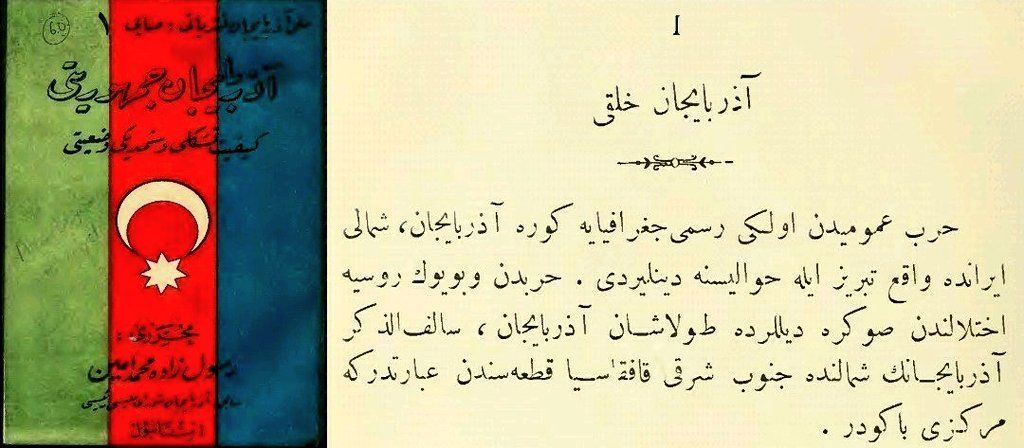 ٦٥
١
آذربایجان جمهوریتی
کیفیت تشکلی و شمدیکی وضعیتی
محرری :
رسول زاده محمد امین
استانبول
I
آذربایجان خلقی
حرب عمومیدن اولکی رسمی جغرافیایه کوره آذربایجان، شمالی
ایرانده واقع تبریز ایله حوالیسنه دینلیردی . حربدن وبویوك روسیه
اختلالندن صوکره دیللرده طولاشان آذربایجان ، سالف‌الذکر
آذربایجانك شمالنده جنوب شرقی قافقاسیا قطعه‌سندن عبارتدرکه
مرکزی باکودر .